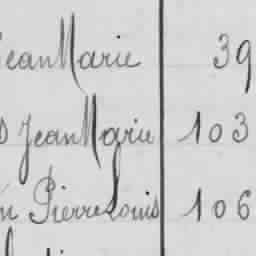 Jean Marie 39
Jean Marie 103
Pierre Louis 106